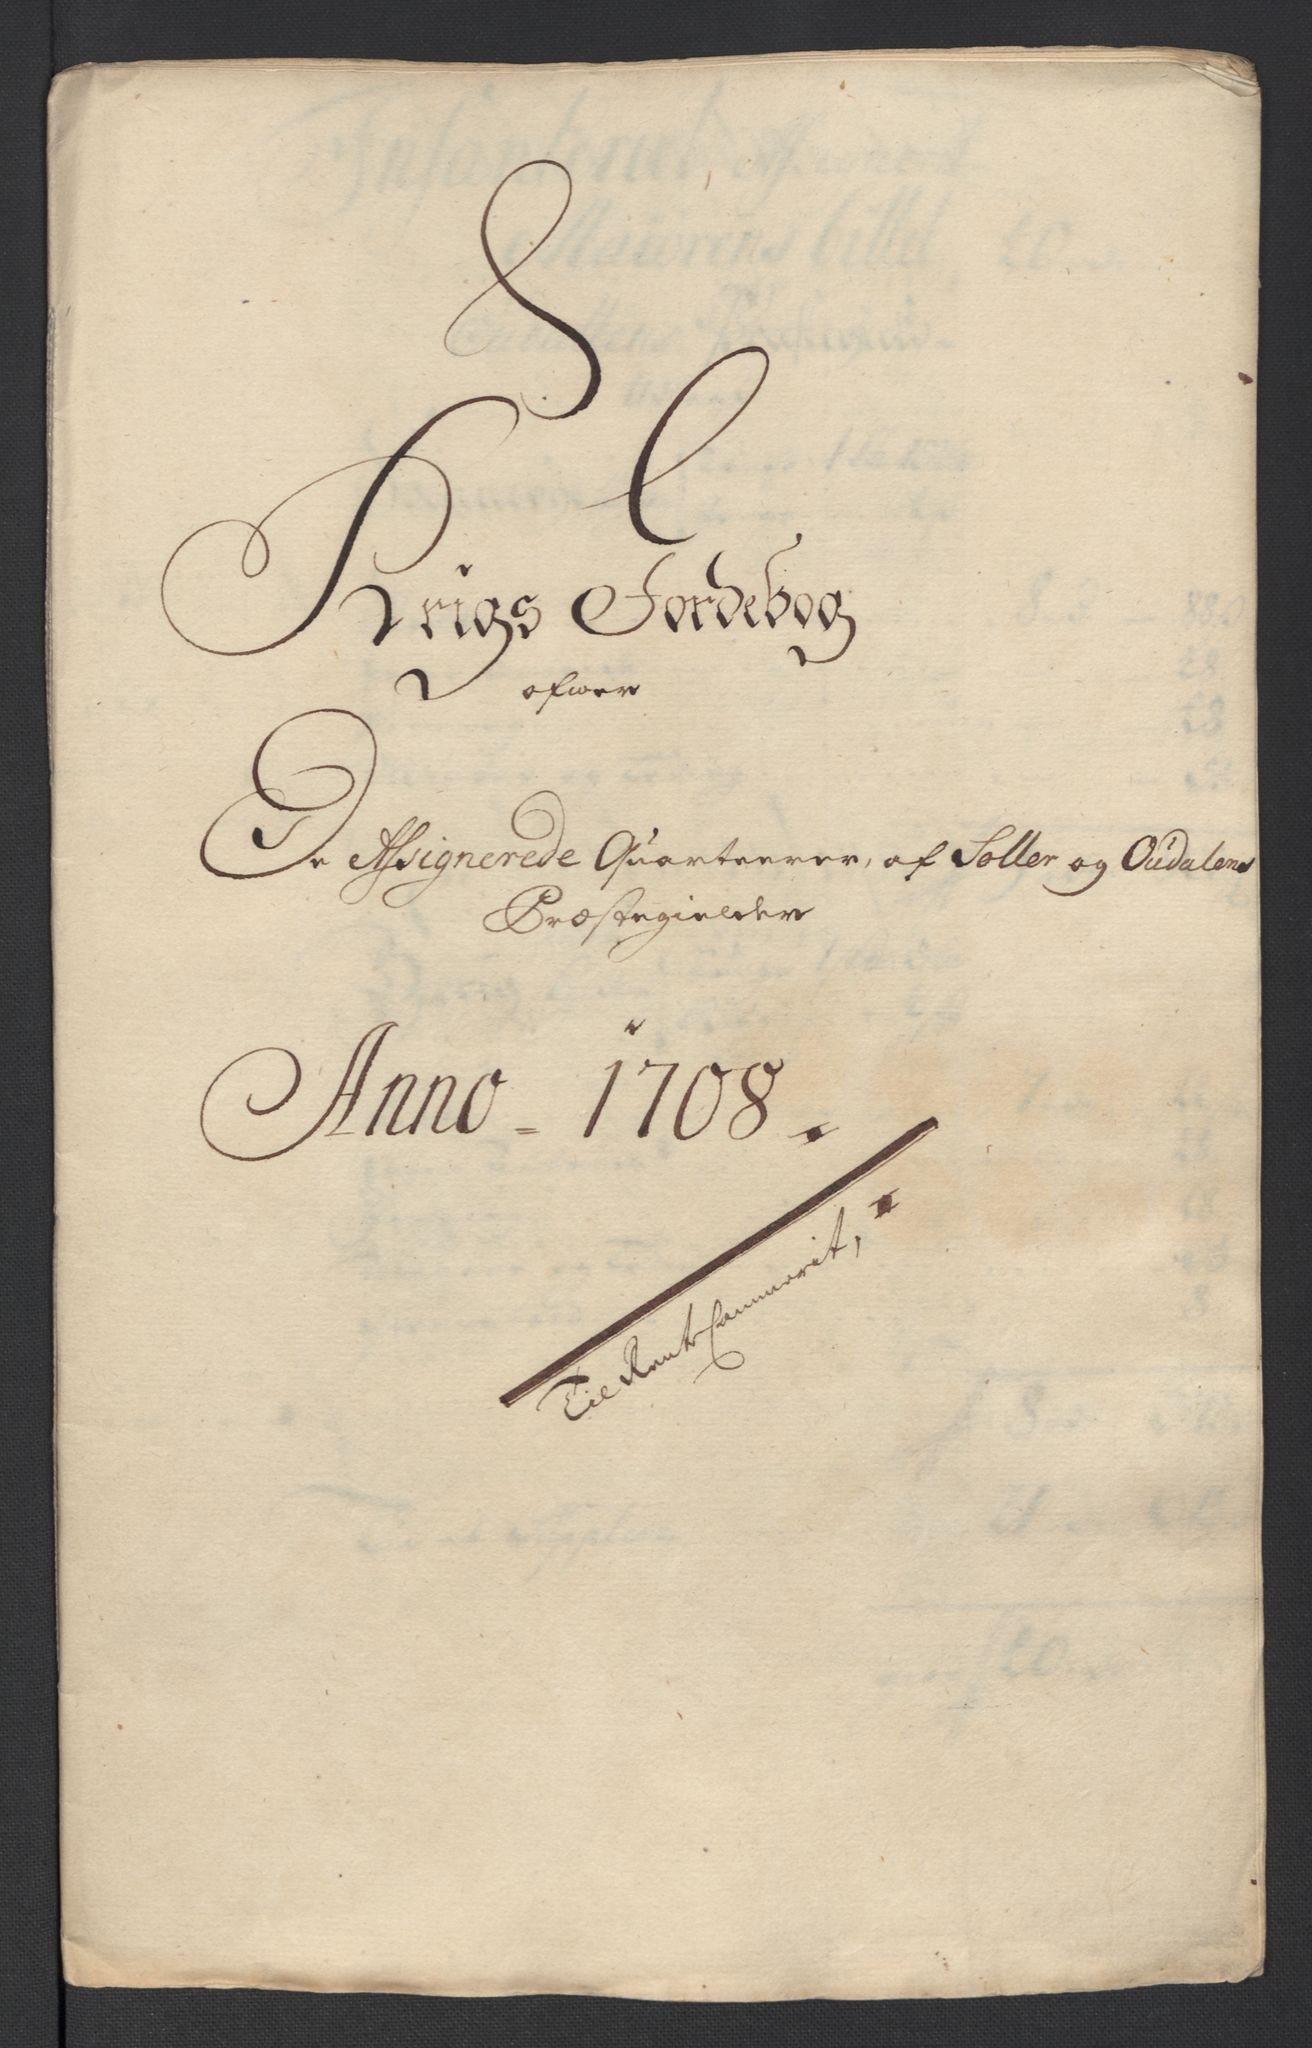 Krigs Jordebog
ofwer
De Assignerede Quarteerer, af Soller og Oudalens
Præstegielder
Anno - 1708.
Til Rente Cammerit,